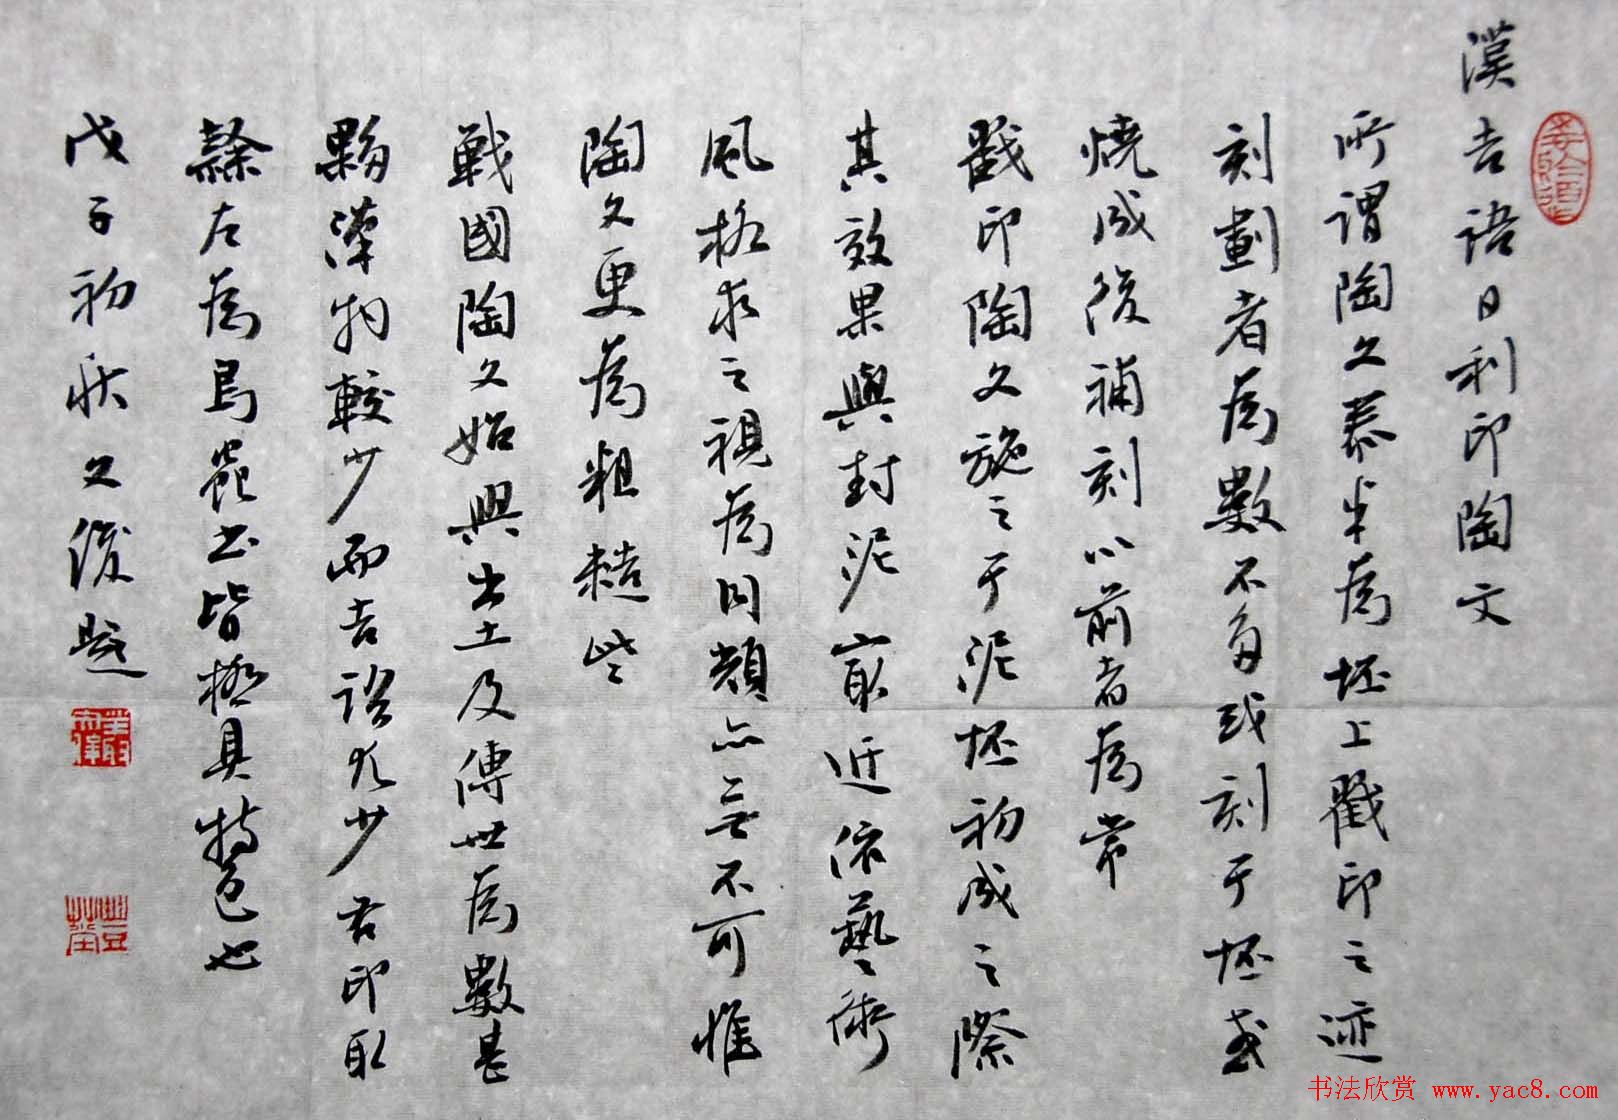 漢吉語日利印陶文
所謂陶文泰半為坯上戳印之迹
刻劃者為數不多或刻于坯或
燒成後補刻以前者為常
戳印陶文施之于泥坯初成之際
其效果與封泥最近依藝術
風格求之視為同類亦無不可惟
陶文更為粗糙些
戰國陶文始興出土及傳世為數甚
夥漢物較少而吉語尤少右印取
隸左為鳥蟲書皆極具特色也
戊子初秋文俊題
书法欣赏 www.yac8.com